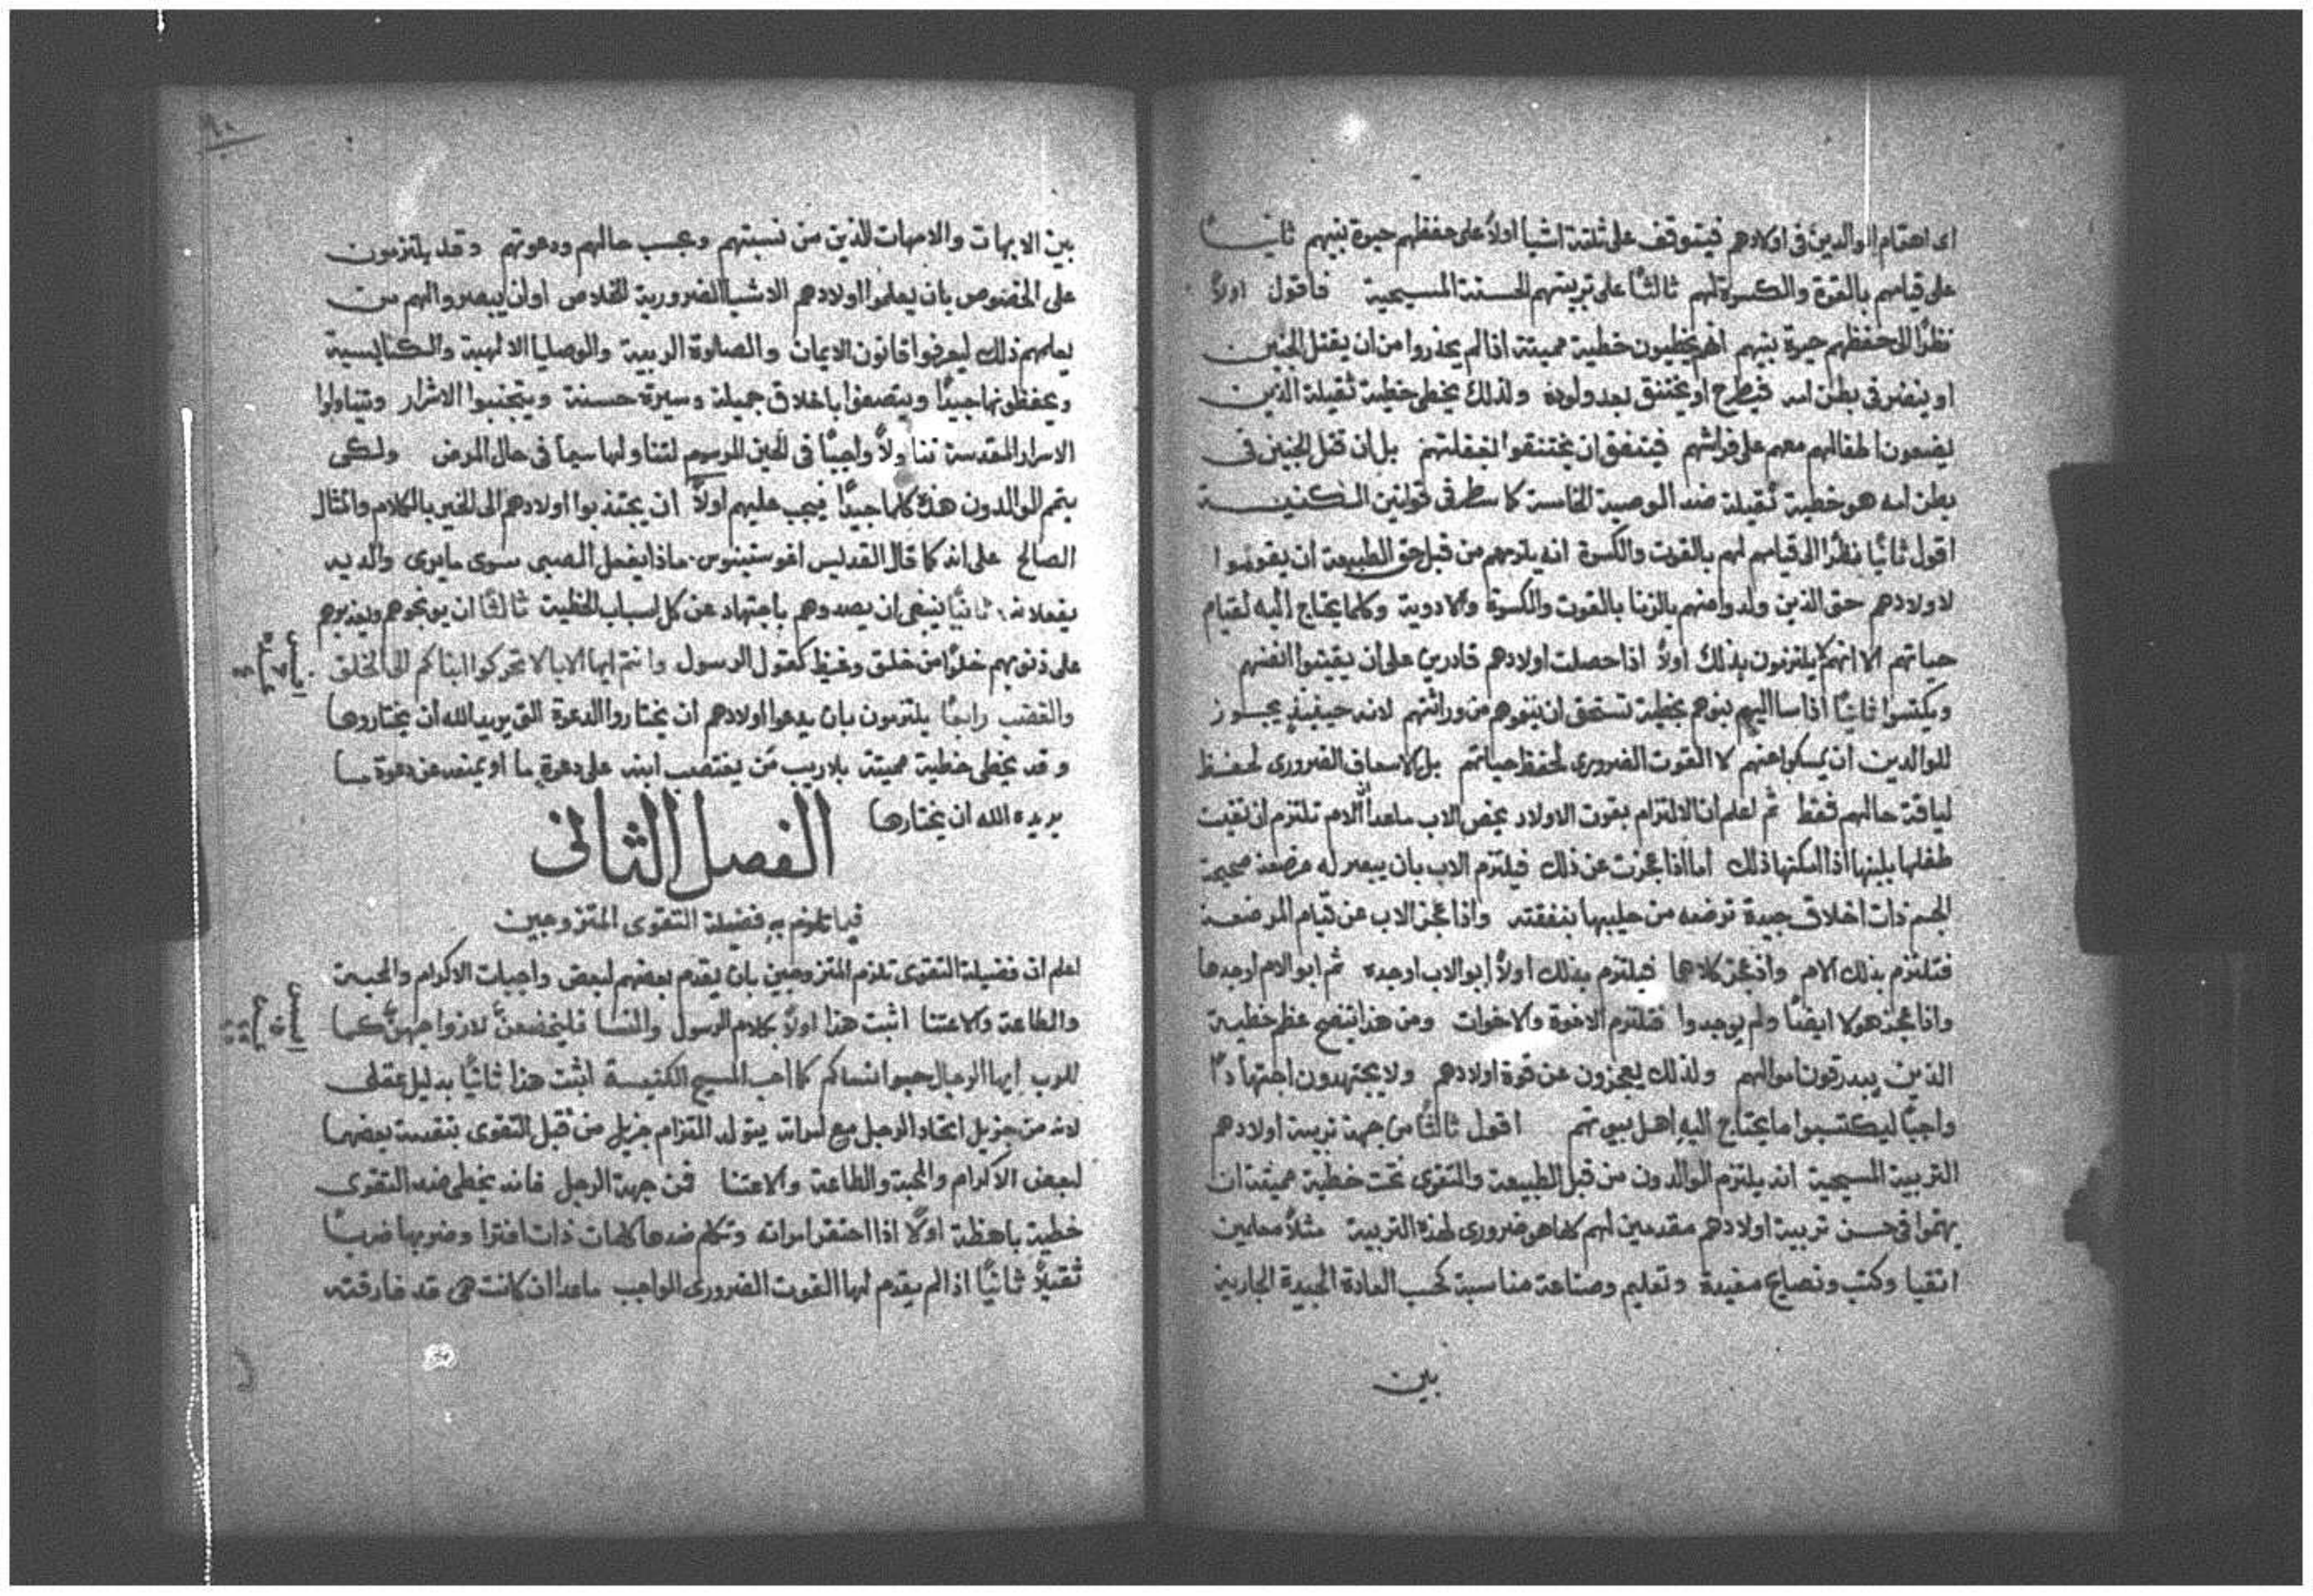 اى اهتمام الوالدين فى اولادهم فيتوقف على ثلثة اشيا اولاً على حفظهم حيوة بنيهم ثانياً
على قيامهم بالقوة والكسوة لهم ثالثاً على تربيتهم الحسنة المسيحية فاقول اولاً
نظراً الى حفظهم حيوة بنيهم انهم يخطيون خطية مميتة اذا لم يحذروا من ان يقتل الجنين
او ينضر فى بطن امه فيطرح او يختنق بعد ولوده ولذلك يخطى خطية ثقيلة الذين
يضعون اطفالهم معهم على فراشهم فيتفق ان يختنقوا لغفلتهم بل ان قتل الجنين فى
بطن امه هو خطية ثقيلة ضد الوصية الخامسة كما سطر فى قوانين الكنيسة
اقول ثانياً نظراً الى قيامهم لهم بالقوت والكسوة انه يلزمهم من قبل حق الطبيعة ان يقوموا
لاولادهم حتى الذين ولدوا منهم بالزنا بالقوت والكسوة والادوية وكلما يحتاج اليه لقيام
حياتهم الا انهم لا يلتزمون بذلك اولاً اذا حصلت اولادهم قادرين على ان يقيتوا انفسهم
ويكتسوا ثانياً اذا اسا اليهم بنوهم بخطية تستحق ان ينفوهم من وراثتهم لانه حينيذ يجوز
للوالدين ان يمسكوا عنهم لا القوت الضرورى لحفظ حياتهم بل الاسعاف الضرورى لحفظ
لياقة حالهم فقط ثم اعلم ان الالتزام بقوت الاولاد يخص الاب ماعدا ان الام تلتزم ان تقيت
طفلها بلبنها اذا امكنها ذلك اما اذا عجزت عن ذلك فيلتزم الاب بان يبصر له مرضعة صحيحة
الجسم ذات اخلاق جيدة ترضعه من حليبها بنفقته واذا عجز الاب عن قيام المرضعة
فتلتزم بذلك الام واذ عجز كلاهما فيلتزم بذلك اولاً ابو الاب او جده ثم ابو الام او جدها
واذا عجز هولا ايضاً ولم يوجدوا فتلتزم الاخوة والاخوات ومن هذا يتضح عظم خطية
الذين يبدرقون اموالهم ولذلك يعجزون عن قوة اولادهم ولا يجتهدون اجتهاداً
واجباً ليكتسبوا ما يحتاج اليه اهل بيوتهم اقول ثالثاً من جهة تربية اولادهم
التربية المسيحية انه يلتزم الوالدون من قبل الطبيعة والتقوى تحت خطية مميتة ان
يهتموا فى حسن تربية اولادهم مقدمين لهم كلما هو ضرورى لهذه التربية مثلاً معلمين
اتقيا وكتب ونصايح مفيدة وتعليم وصناعة مناسبة كحسب العادة الجيدة الجارية
بين
بين الابهات والامهات الذين من نسبتهم وبحسب حالهم ودعوتهم وقد يلتزمون
على الخصوص بان يعلموا اولادهم الاشيا الضرورية للخلاص او ان يبصروا لهم من
يعلمهم ذلك ليعرفوا قانون الايمان والصلوة الربية والوصايا الالهية والكنايسية
ويحفظونها جيداً ويتصفوا باخلاق جميلة وسيرة حسنة ويتجنبوا الاشرار ويتناولوا
الاسرار المقدسة تناولاً واجباً فى الحين المرسوم لتناولها سيما فى حال المرض ولكى
يتم الوالدون هذه كلها جيداً فيجب عليهم اولاً ان يجتذبوا اولادهم الى الخير بالكلام والمثال
الصالح على انه كما قال القديس اغوستينوس ماذا يفعل الصبى سوى ما يرى والديه
يفعلانه ثانياً ينبغى ان يصدوهم باجتهاد عن كل اسباب الخطية ثالثاً ان يوبخوهم ويعذبوهم
على ذنوبهم خلواً من خلق وغيظ كقول الرسول وانتم ايها الابا لا تحركوا ابناكم الى الخلق
والغضب رابعاً يلتزمون بان يدعوا اولادهم ان يختاروا الدعوة التى يريد الله ان يختاروها
وقد يخطى خطية مميتة بلا ريب من يغتصب ابنه على دعوة ما او يمنعه عن دعوة ما
يريده الله ان يختارها
الفصل الثانى
فيما تلزم به فضيلة التقوى المتزوجين
اعلم ان فضيلة التقوى تلزم المتزوجين بان يقدم بعضهم لبعض واجبات الاكرام والمحبة
والطاعة والاعتنا اثبت هذا اولاً بكلام الرسول والنسا فليخضعن لازواجهن كما
للرب ايها الرجال احبوا نساكم كما احب المسيح الكنيسة اثبت هذا ثانياً بدليل عقلى
لانه من جزيل اتحاد الرجل مع امراته يتولد التزام جزيل من قبل التقوى بتقدمة بعضهما
لبعض الاكرام والمحبة والطاعة والاعتنا فمن جهة الرجل فانه يخطى ضد التقوى
خطية باهظة اولاً اذا احتقر امراته وتكلم ضدها كلمات ذات افترا وضربها ضرباً
ثقيلاً ثانياً اذا لم يقدم لها القوت الضرورى الواجب ماعدا ان كانت هى قد فارقته